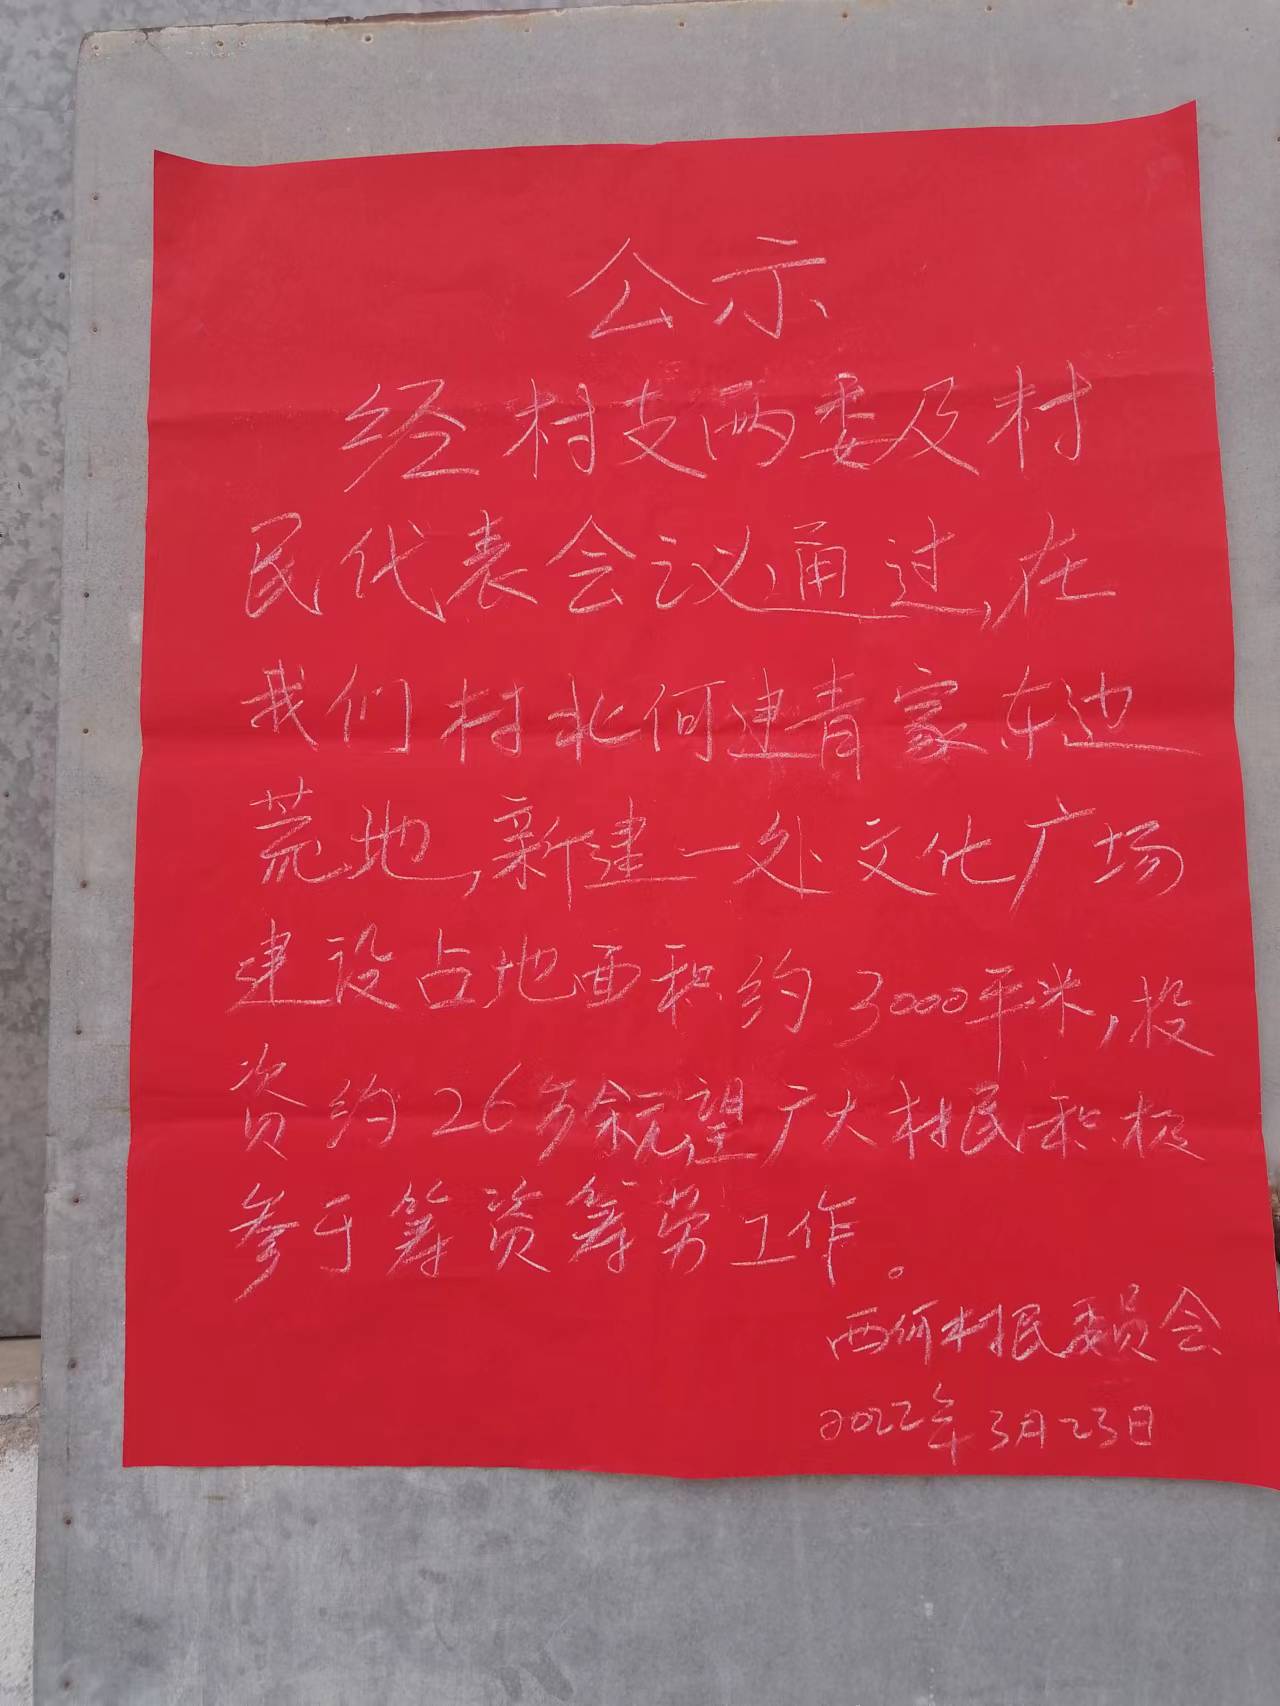 公示
经村支两委及村
民代表会议通过,在
我们村北何建青家东边
荒地,新建一处文化广场
建设占地面积约3000平米,投
资约26万余元,望广大村民积极
参于筹资筹劳工作。
西何村村民委员会
2022年3月23日